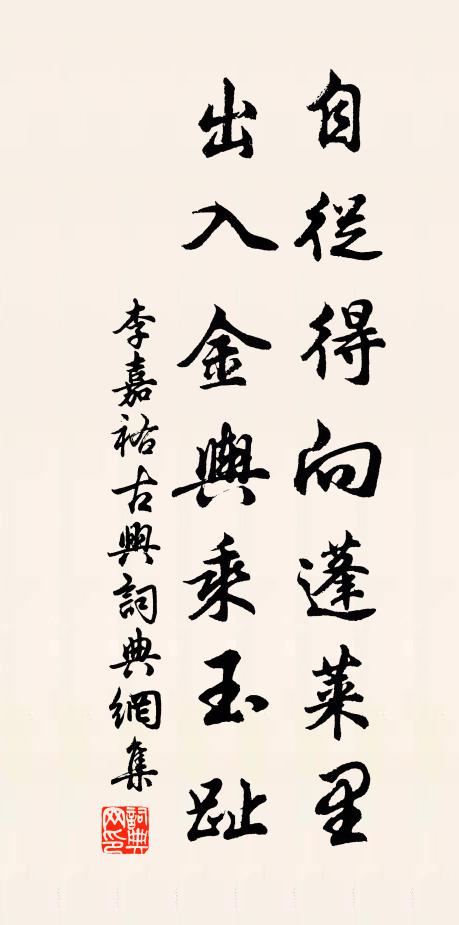 自從得向蓬萊里
出入金輿乘玉趾
李嘉祐古興詞典網集
詞典網印